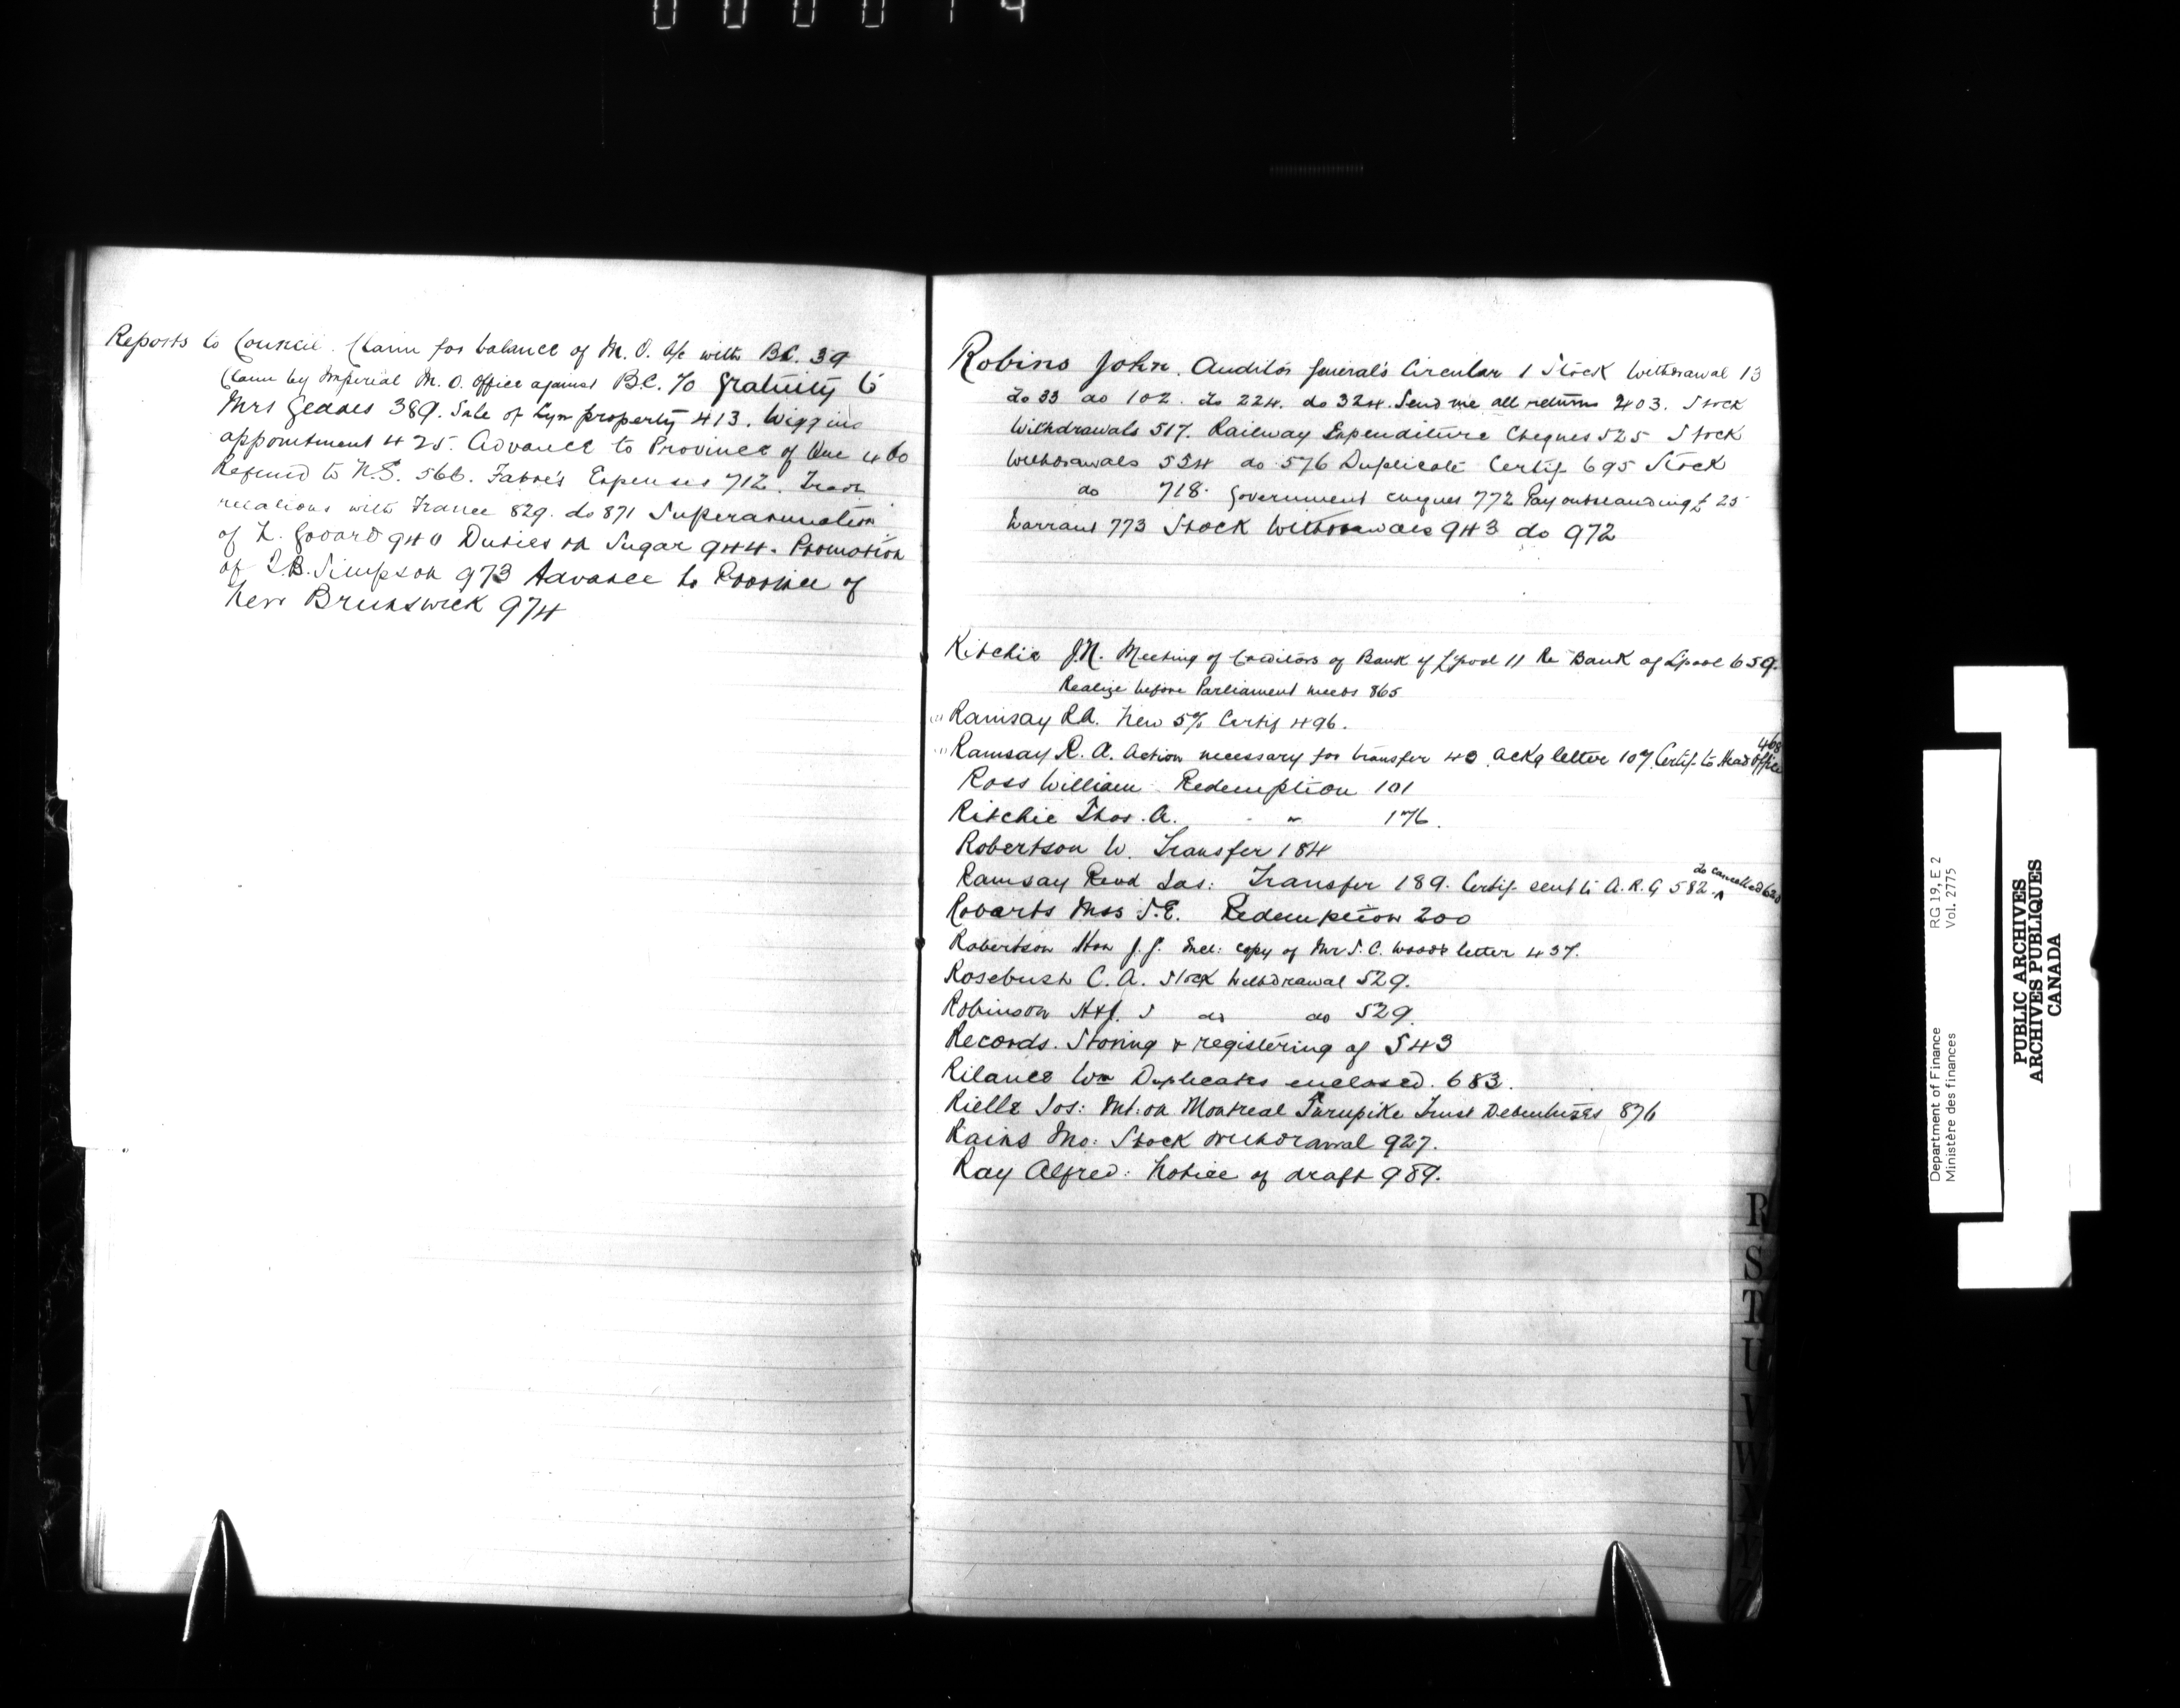 Reports to Council. Claim for balance of M. O. a/c with B.C. 39
Claim by Imperial M. O. Office against B.C. 70 Gratuity to
Mrs Geddes 389. Sale of Lyn property 413. Wiggins
appointment 425. Advance to Province of Que 460
Refund to N.S. 566. Fabre's Expenses 712. Trade
relations with France 829. do 871 Superannuation
of L. 940 Duties on Sugar 944. Promotion
of Simpson 973 Advance to Province of
New Brunswick 974
Robins John. Auditor General's Circular 1 Stock Withdrawal 13
do 33 do 102. do 224. do 324. Send me all returns 403. Stock
Withdrawals 517. Railway Expenditure Cheques 525 Stock
Withdrawals 554 do 576 Duplicate Certif 695 Stock
do 718. Government cheques 772 Pay outstanding £ 25
Warrant 773 Stock Withdrawals 943 do 972
Ritchie J.N. Meeting of Creditors of Bank of L'pool 11 Re Bank of L'pool 659.
Realize before Parliament meets 865
Ramsay R.A. New 5% Certif 496.
Ramsay R. A. Action necessary for transfer 40 ackg letter 107 Certif. to Head Office 468
Ross William Redemption 101
Ritchie Thos. A. " 176.
Robertson W. Transfer 184
Ramsay Revd Jas: Transfer 189. Certif. sent to A.R.G 582. do cancelled 620
Robarts Mss T.E. Redemption 200
Robertson Hon J. J. Incl: copy of Mr S. C. Wood's letter 437.
Rosebush C. A. Stock Withdrawal 529.
Robinson H&J. S do do 529.
Records. Storing & registering of 543
Rilance Wm Duplicates enclosed. 683.
Rielle Jos: Int: on Montreal Turnpike Trust Debentures 876
Rains Mo: Stock Withdrawal 927.
Ray Alfred: Notice of draft 989.
R
S
T
U
V
W
X
Y
Z
Department of Finance
Ministère des finances
RG 19, E 2
Vol. 2775
PUBLIC ARCHIVES
ARCHIVES PUBLIQUES
CANADA